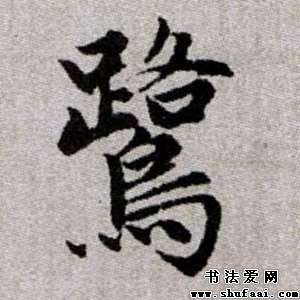 鷺
书法爱网
www.shufaai.com